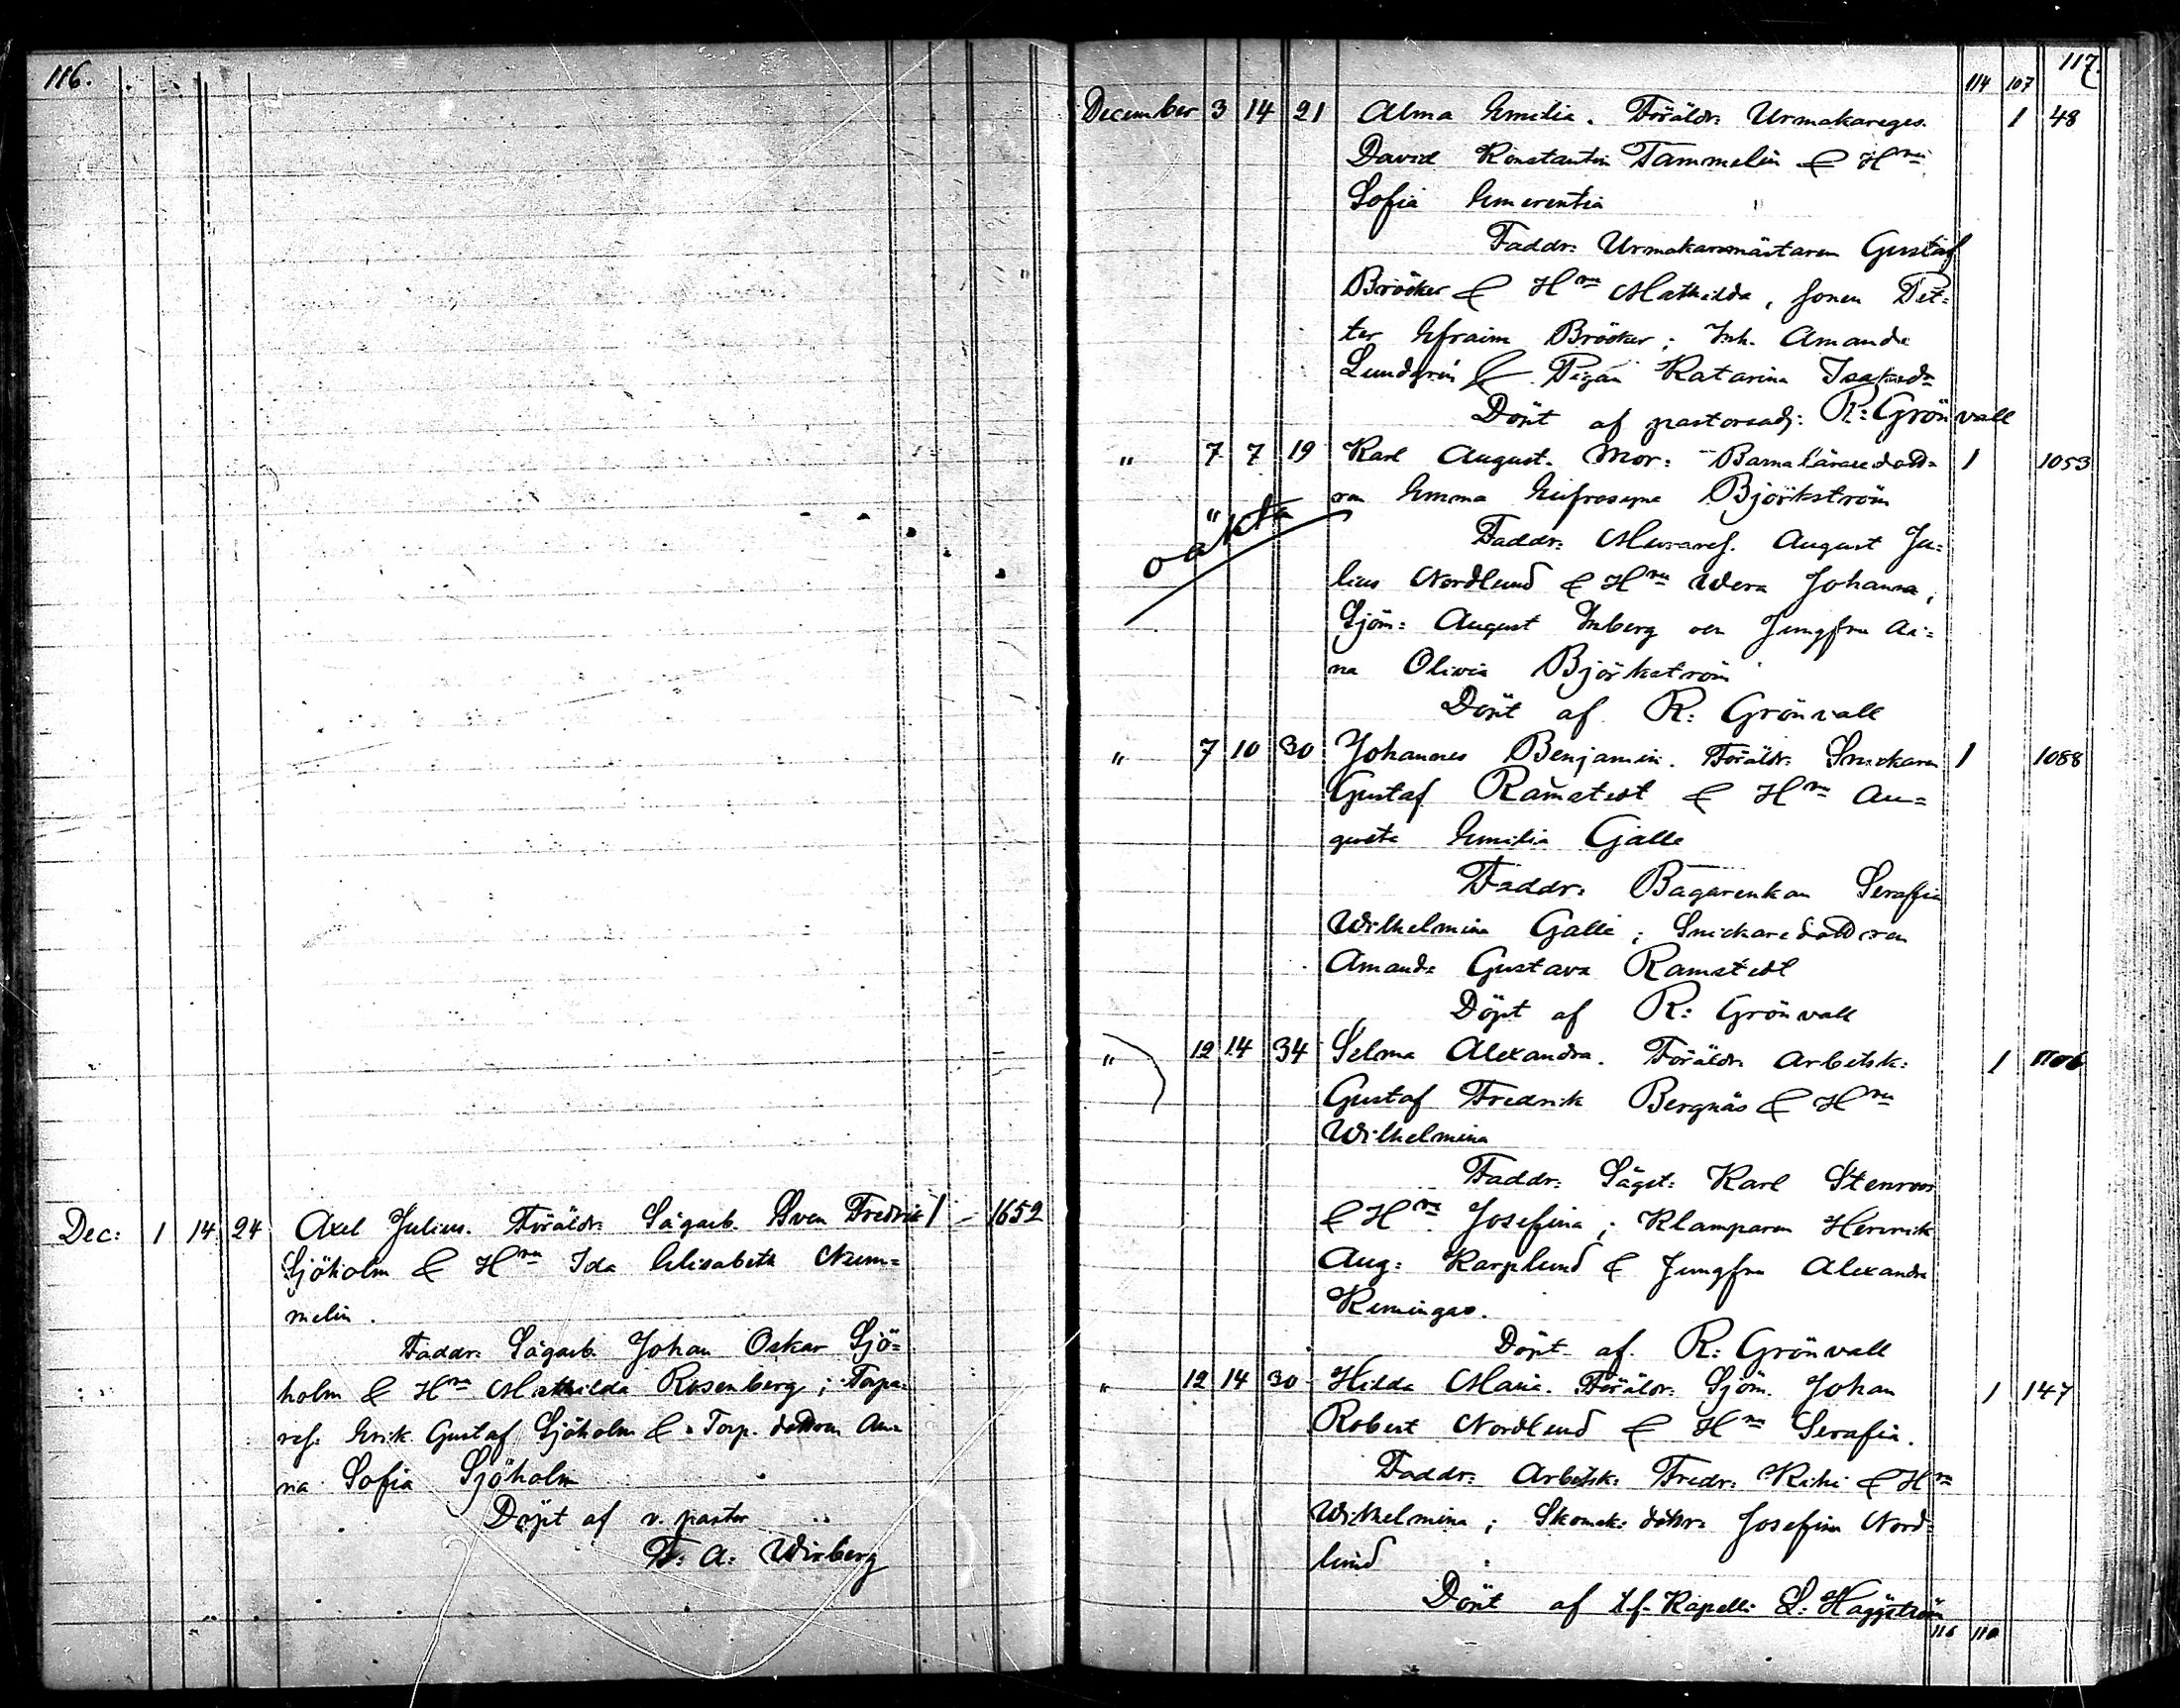 116.
Dec: 1 14 24 Axel Julius. Föräldr: Sågarb. Sven Fredrik 1 - 1652
Sjöholm & Hru Ida Elisabeth Num=
melin.
Faddr: Sågarb. Johan Oskar Sjö=
holm & Hru Mathilda Rosenberg; Torpa=
ref. Erik Gustaf Sjöholm & Torp. dottren An=
na Sofia Sjöholm
Döpt af v. pastor
F: A: Wirberg
117.
114 107
December 3 14 21 Alma Emilia. Föräldr: Urmakareges. 1 48
David Konstantin Tammelin & Hru
Sofia Emerentia
Faddr: Urmakaremästaren Gustaf
Bröcker & Hru Mathilda, sonen Pet=
ter Efraim Bröcker; Inh. Amanda
Lundgrén & Pigan Katarina Isaksdr
Döpt af pastorsadj: R: Grönvall
" 7 7 19 Karl August. Mor: Barnaläraredott= 1 1053
ren Emma Eufrosyne Björkström
" oäkta
Faddr: August Ju=
lius Nordlund & Hru Wera Johanna,
Sjöm: August Inberg och Jungfru Ai=
na Olivia Björkström
Döpt af R: Grönvall
" 7 10 30 Johannes Benjamin. Föräldr: Snickaren 1 1088
Gustaf Ramstedt & Hru Au=
gusta Emilia Galle
Faddr: Bagarenkan Serafia
Wilhelmina Galle; Snickaredottren
Amanda Gustava Ramstedt
Döpt af R: Grönvall
" 12 14 34 Selma Alexandra. Föräldr: Arbetsk: 1 1106
Gustaf Fredrik Bergnäs & Hru
Wilhelmina
Faddr: Sågst: Karl Stenroos
& Hru Josefina; Klamparen Henrik
Aug: Karplund & Jungfru Alexandra
Kemingas.
Döpt af R: Grönvall
" 12 14 30 Hilda Maria. Föräldr: Sjöm. Johan 1 147
Robert Nordlund & Hru Serafia.
Faddr: Arbetsk: Fredr: Kihi & Hru
Wilhelmina; Skomak: döttr: Josefina Nord=
lund
Döpt af t.f. Kapell: L: Häggström
116 110